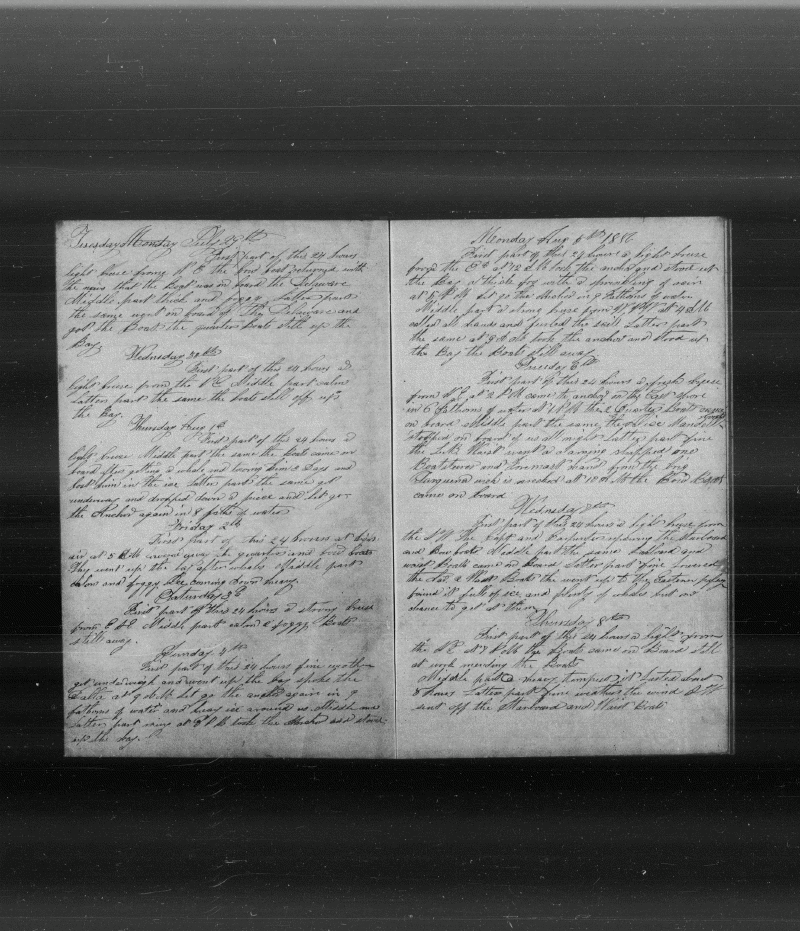 Tuesday Monday July 29th
First part of this 24 hours
light breese from N E the bow boat returned with
the news that the Boat was on board the Delaware
Middle part thick and foggy latter part
the same went on board of The Delaware and
got the Boat the quarter Boats still up the
Bay
Wednesday 30th
First part of this 24 hours a
light breese from the N E Middle part calm
Latter part the same the boats still off up
the Bay.
Thursday Aug 1st
First part of this 24 hours a
light breese Middle part the same the Boat came on
board after getting a whale and having him 2 days and
lost him in the ice latter part the same got
underway and dropped down a piece and let go
the Anchor again in 8 fathoms of water
Friday 2th
First part of this 24 hours at
at 5 P M gave the quarter and bow boats
They went up the bay after whales Middle part
calm and foggy Ice coming down heavy
Saturday 3d
First part of this 24 hours a strong breese
from E N E Middle part calm & foggy Boats
still away.
Sunday 4th
First part of this 24 hours fine weather
got underweigh and went up the bay spoke the
at 9 P M let go the anchor again in 9
fathoms of water and heavy ice around us Middle and
latter part rainy at 9 P M took the Anchor and stood
up the bay.
Monday Aug 5th
First part of this 24 hours a light breese
from the E at 12 M took the anchor and stood up
the Bay a thick fog with a sprinkling of rain
at P M let go the Anchor in 9 fathoms of water
Middle part a strong breese from at 4 A M
called all hands and furled the sails Latter part
the same at 9 A M took the anchor and stood up
the Bay the Boats still away
Tuesday 6th
First part of this 24 hours a fresh breese
from at 2 P M came to anchor on the East shore
in 6 fathoms of water at P M the 2 Quarter Boats came
on board Middle part the same,
stopped on board of us all night Latter part fine
the Waist went a shipped one
Boatsteerer and hand from the brig
is anchored at 10 A M the Bow Boats
came on board
Wednesday 7th
First part of this 24 hours a light breese from
the S W The Capt and Carpenter repairing the Starboard
and Bow boats Middle part the same Larboard and
waist Boats came on board Latter part fine
the Lar & Waist Boats the went up to the Eastern
found it full of ice and plenty of whales but no
chance to get at them
Thursday 8th
First part of this 24 hours a light from
the N E at 7 P M the boats came on Board still
at work mending the Boats
Middle part a heavy tempest it lasted about
8 hours Latter part fine weather the wind S W
sent off the Starboard and Waist Boats